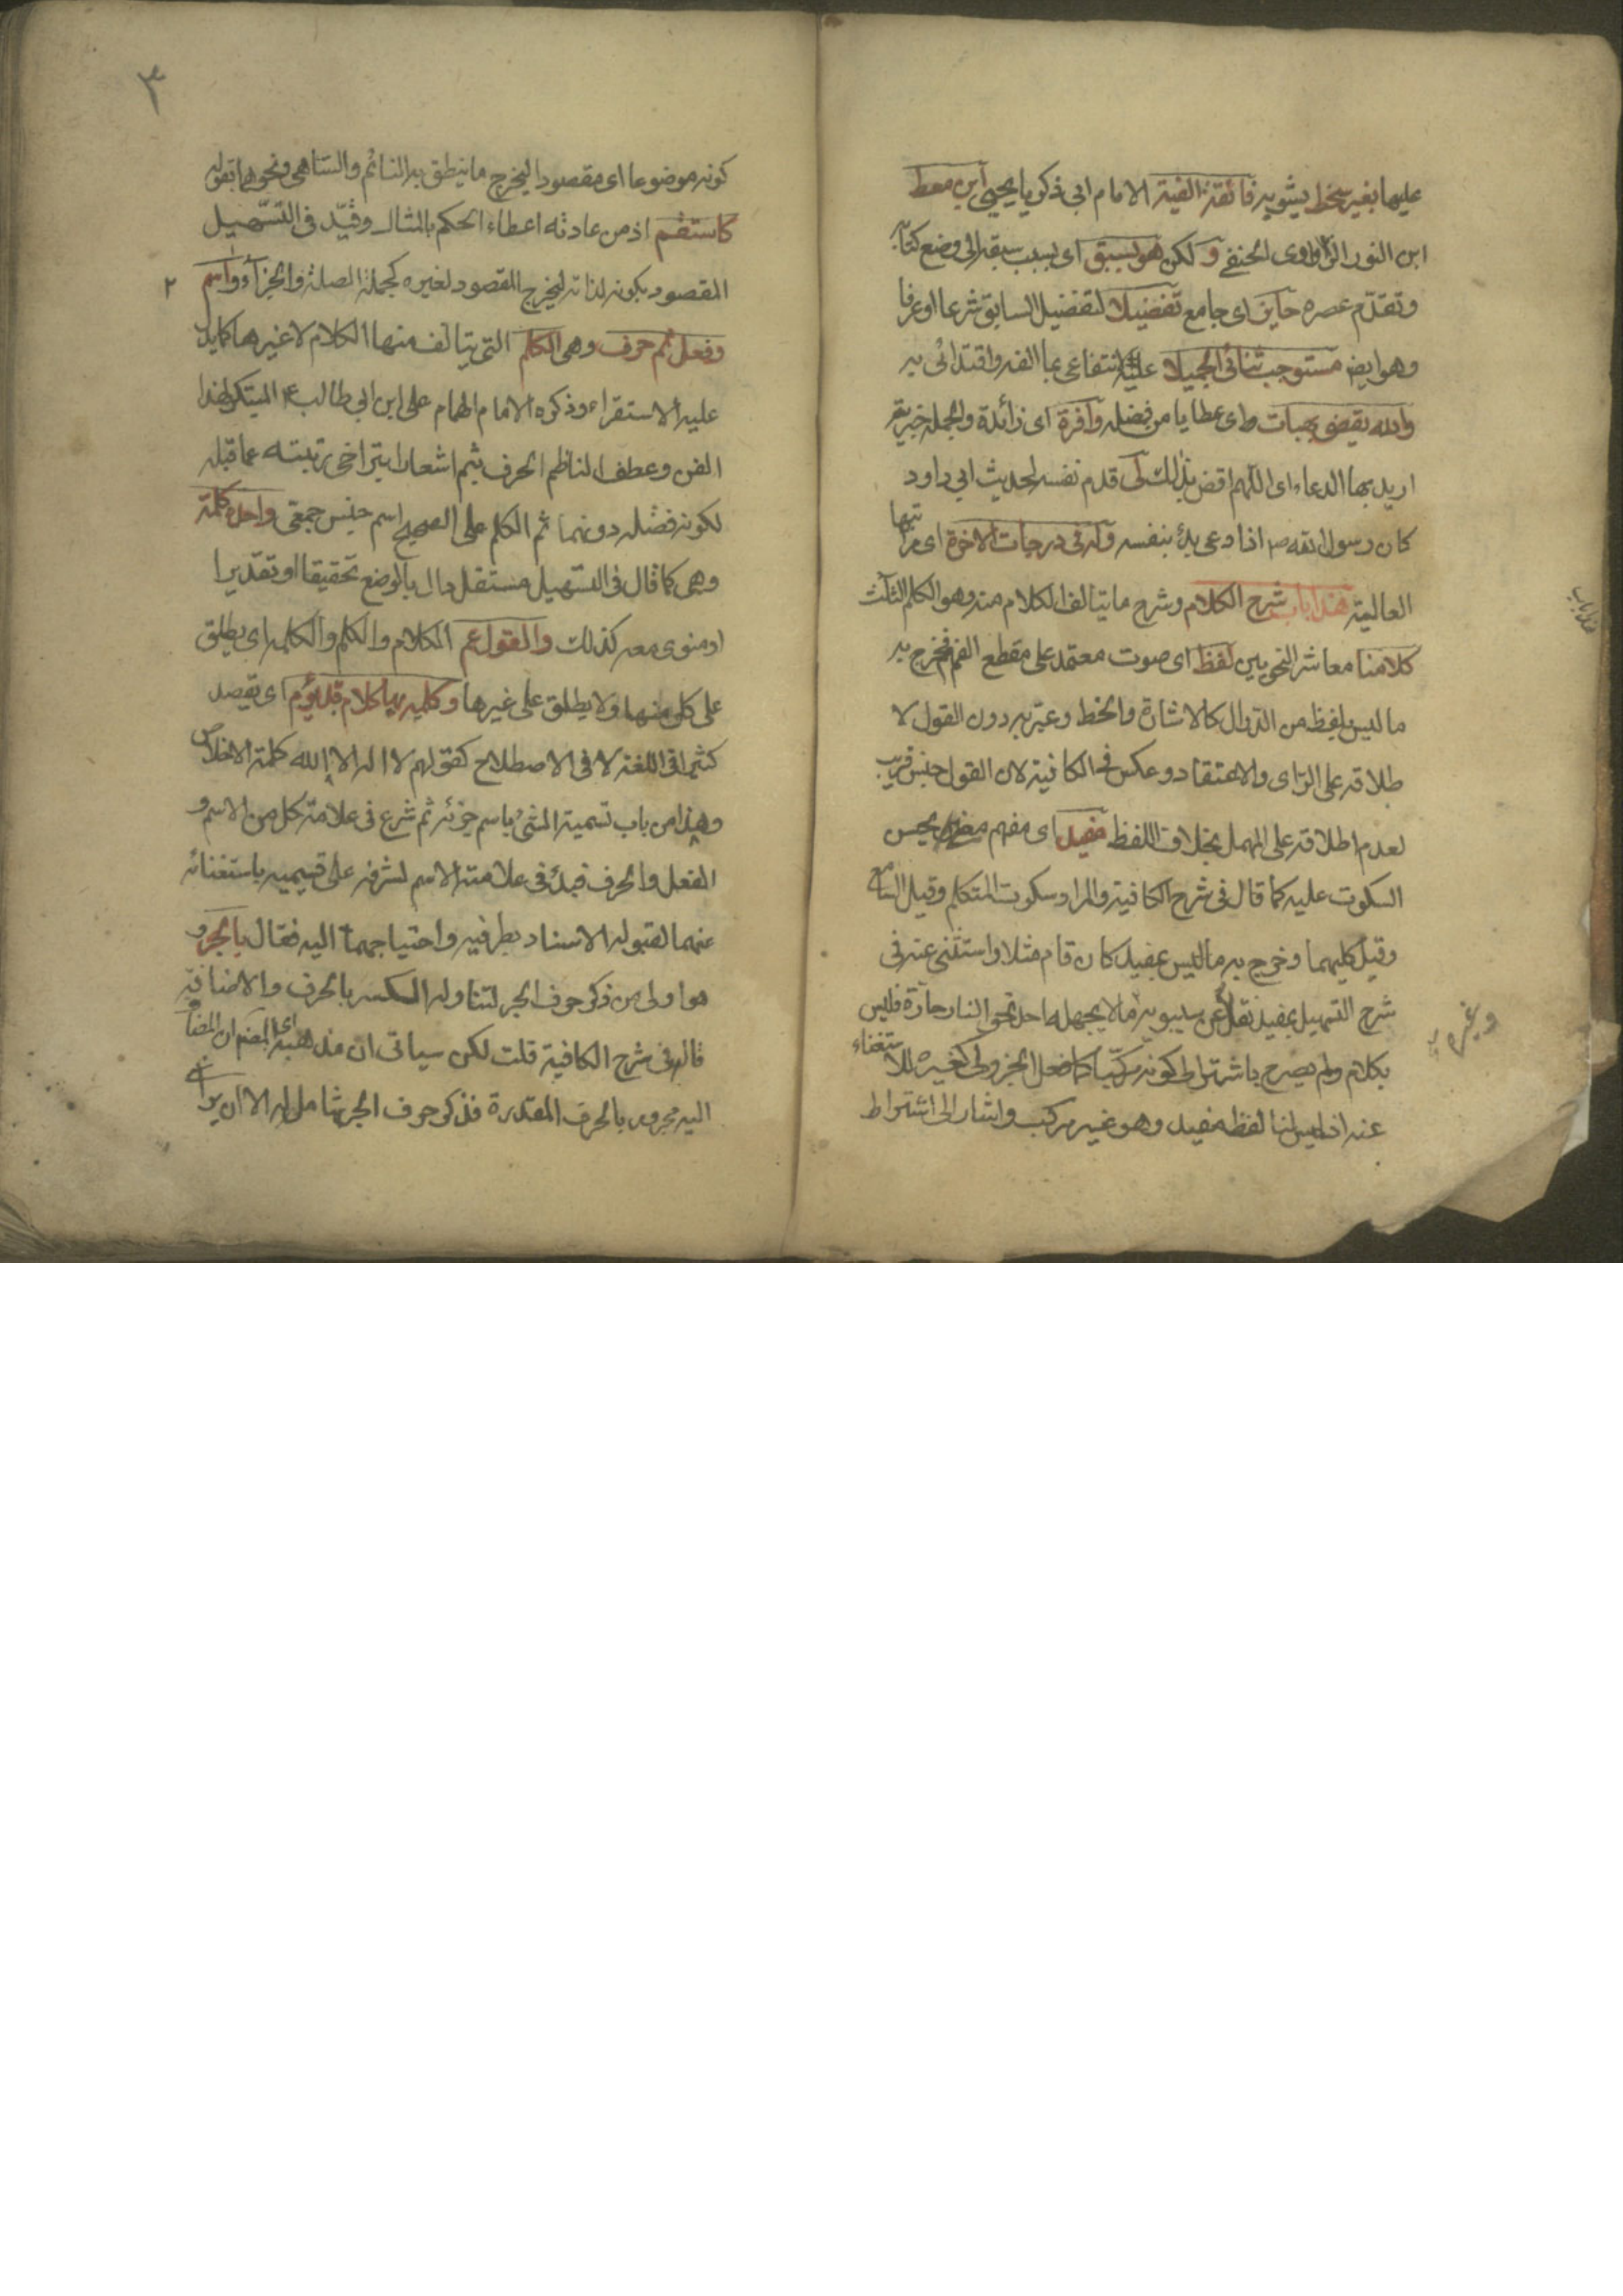 عليها بغير سخط يشوبه فائقة الفية الامام ابى ذكريا يحيى ابن معط
ابن النور الزواوى الحنفى ولكن هو بسبق اى بسبب سبقه الى وضع كتابه
وتقدم عصره حايز اى جامع تفضيلا لتفضيل السابق شرعا او عرفا
وهو ايض مستوجب ثنائى الجميلا عليه لانتفاعى بما الفه واقتدائى به
والله يقضى بهبات اى عطايا من فضله وافرة اى زائدة والجملة خبرية
اريد بها الدعاء اى اللهم اقض بذلك لى قدم نفسه لحديث ابى داود
كان رسول الله ص اذا دعى بدأ بنفسه وله فى درجات الاخرة اى مراتبها
العالية هذا باب شرح الكلام وشرح ما يتالف الكلام منه وهو الكلم الثلث
كلامنا معاشر النحويين لفظ اى صوت معتمد على مقطع الفم فخرج به
ما ليس بلفظ من الدوال كالاشارة والخط وعبر به دون القول لا
طلاقه على الراى والاعتقاد وعكس فى الكافية لان القول جنس قريب
لعدم اطلاقه على المهمل بخلاف اللفظ مفيد اى مفهم معنى يحسن
السكوت عليه كما قال فى شرح الكافية والمراد سكوت المتكلم وقيل السامع
وقيل كليهما وخرج به ما ليس بمفيد كان قام مثلا واستثنى عنه فى
شرح التسهيل بمفيد نقلا عن سيبويه ما لا يجهله احد نحو النار حارة فليس
بكلام ولم يصرح باشتراط كونه مركبا كما فعل الجزولى كغيره للاستغناء
عنه اذ ليس لنا لفظ مفيد وهو غير مركب واشار الى اشتراط
وغيره
هذا باب
٣
كونه موضوعا اى مقصودا ليخرج ما ينطق به النائم والساهى ونحوهما بقوله
كاستقم اذ من عادته اعطاء الحكم بالمثال وقيد فى التسهيل
المقصود بكونه لذاته ليخرج المقصود لغيره كجملة الصلة والجزاء واسم
٢
وفعل ثم حرف وهى الكلم التى يتالف منها الكلام لا غيرها كما يدل
عليه الاستقراء وذكره الامام الهمام على ابن ابى طالب ع المبتكر لهذا
الفن وعطف الناظم الحرف بثم اشعارا بتراخى رتبته عما قبله
لكونه فضله دونهما ثم الكلم على الصحيح اسم جنس جمعى واحده كلمة
وهى كما قال فى التسهيل مستقل دال بالوضع تحقيقا او تقديرا
او منوى معه كذلك والقول عم الكلام والكلم والكلمة اى يطلق
على كل منها ولا يطلق على غيرها وكلمة بها كلام قد يؤم اى يقصد
كثيرا فى اللغة لا فى الاصطلاح كقولهم لا اله الا الله كلمة الاخلاص
وهذا من باب تسمية الشئ باسم جزئه ثم شرع فى علامة كل من الاسم و
الفعل والحرف فبدأ فى علامة الاسم لشرفه على قسيميه باستغنائه
عنهما لقبوله الاسناد بطرفيه واحتياجهما اليه فقال بالجر و
هو اولى من ذكر حرف الجر لتناوله الكسر بالحرف والاضافة
قاله فى شرح الكافية قلت لكن سياتى ان مذهبه اى المصنف ان المضاف
اليه مجرور بالحرف المقدرة فذكر حرف الجر شامل له الا ان يراد